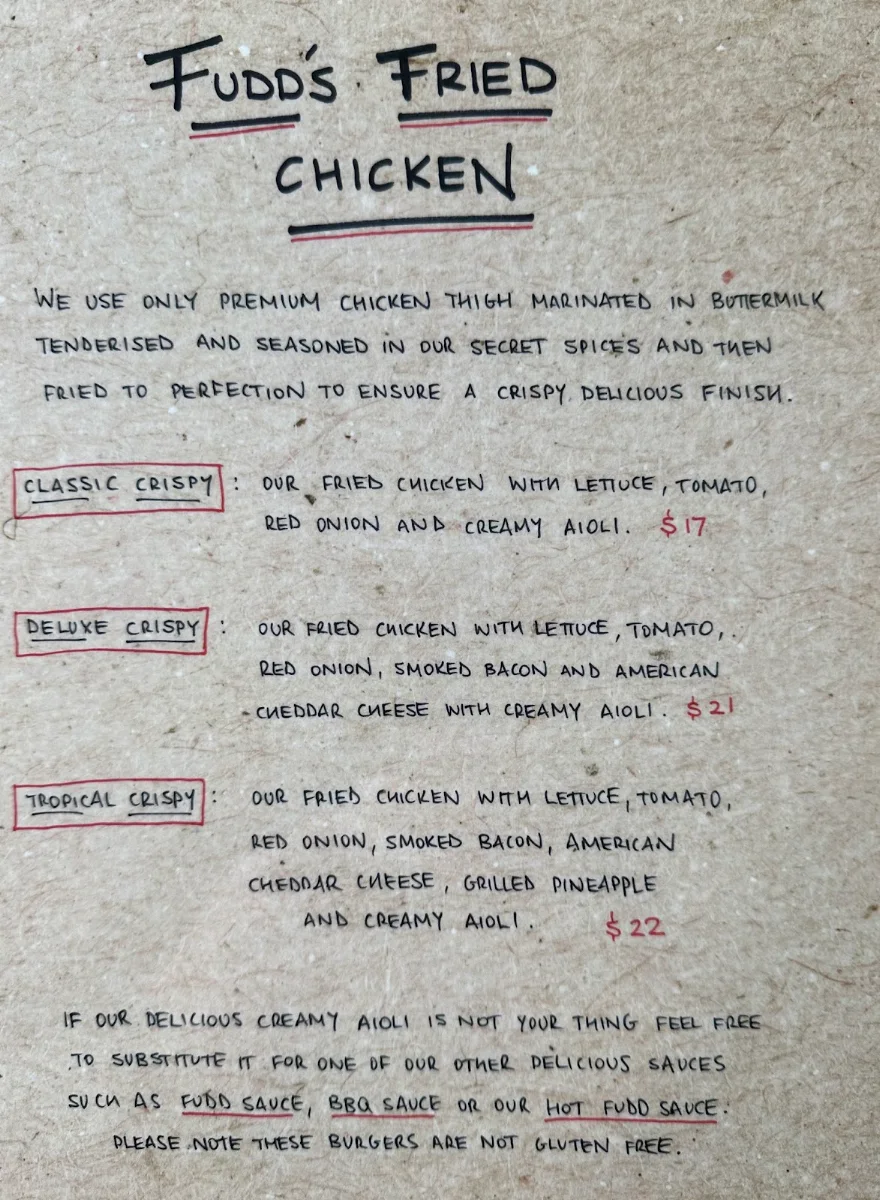 FUDD'S FRIED
CHICKEN
WE USE ONLY PREMIUM CHICKEN THIGH MARINATED IN BUTTERMILK
TENDERISED AND SEASONED IN OUR SECRET SPICES AND THEN
FRIED TO PERFECTION TO ENSURE A CRISPY DELICIOUS FINISH.
CLASSIC CRISPY : OUR FRIED CHICKEN WITH LETTUCE, TOMATO,
RED ONION AND CREAMY AIOLI. $17
DELUXE CRISPY : OUR FRIED CHICKEN WITH LETTUCE, TOMATO,
RED ONION, SMOKED BACON AND AMERICAN
CHEDDAR CHEESE WITH CREAMY AIOLI. $21
TROPICAL CRISPY : OUR FRIED CHICKEN WITH LETTUCE, TOMATO,
RED ONION, SMOKED BACON, AMERICAN
CHEDDAR CHEESE, GRILLED PINEAPPLE
AND CREAMY AIOLI. $22
IF OUR DELICIOUS CREAMY AIOLI IS NOT YOUR THING FEEL FREE
TO SUBSTITUTE IT FOR ONE OF OUR OTHER DELICIOUS SAUCES
SUCH AS FUDD SAUCE, BBQ SAUCE OR OUR HOT FUDD SAUCE.
PLEASE NOTE THESE BURGERS ARE NOT GLUTEN FREE.